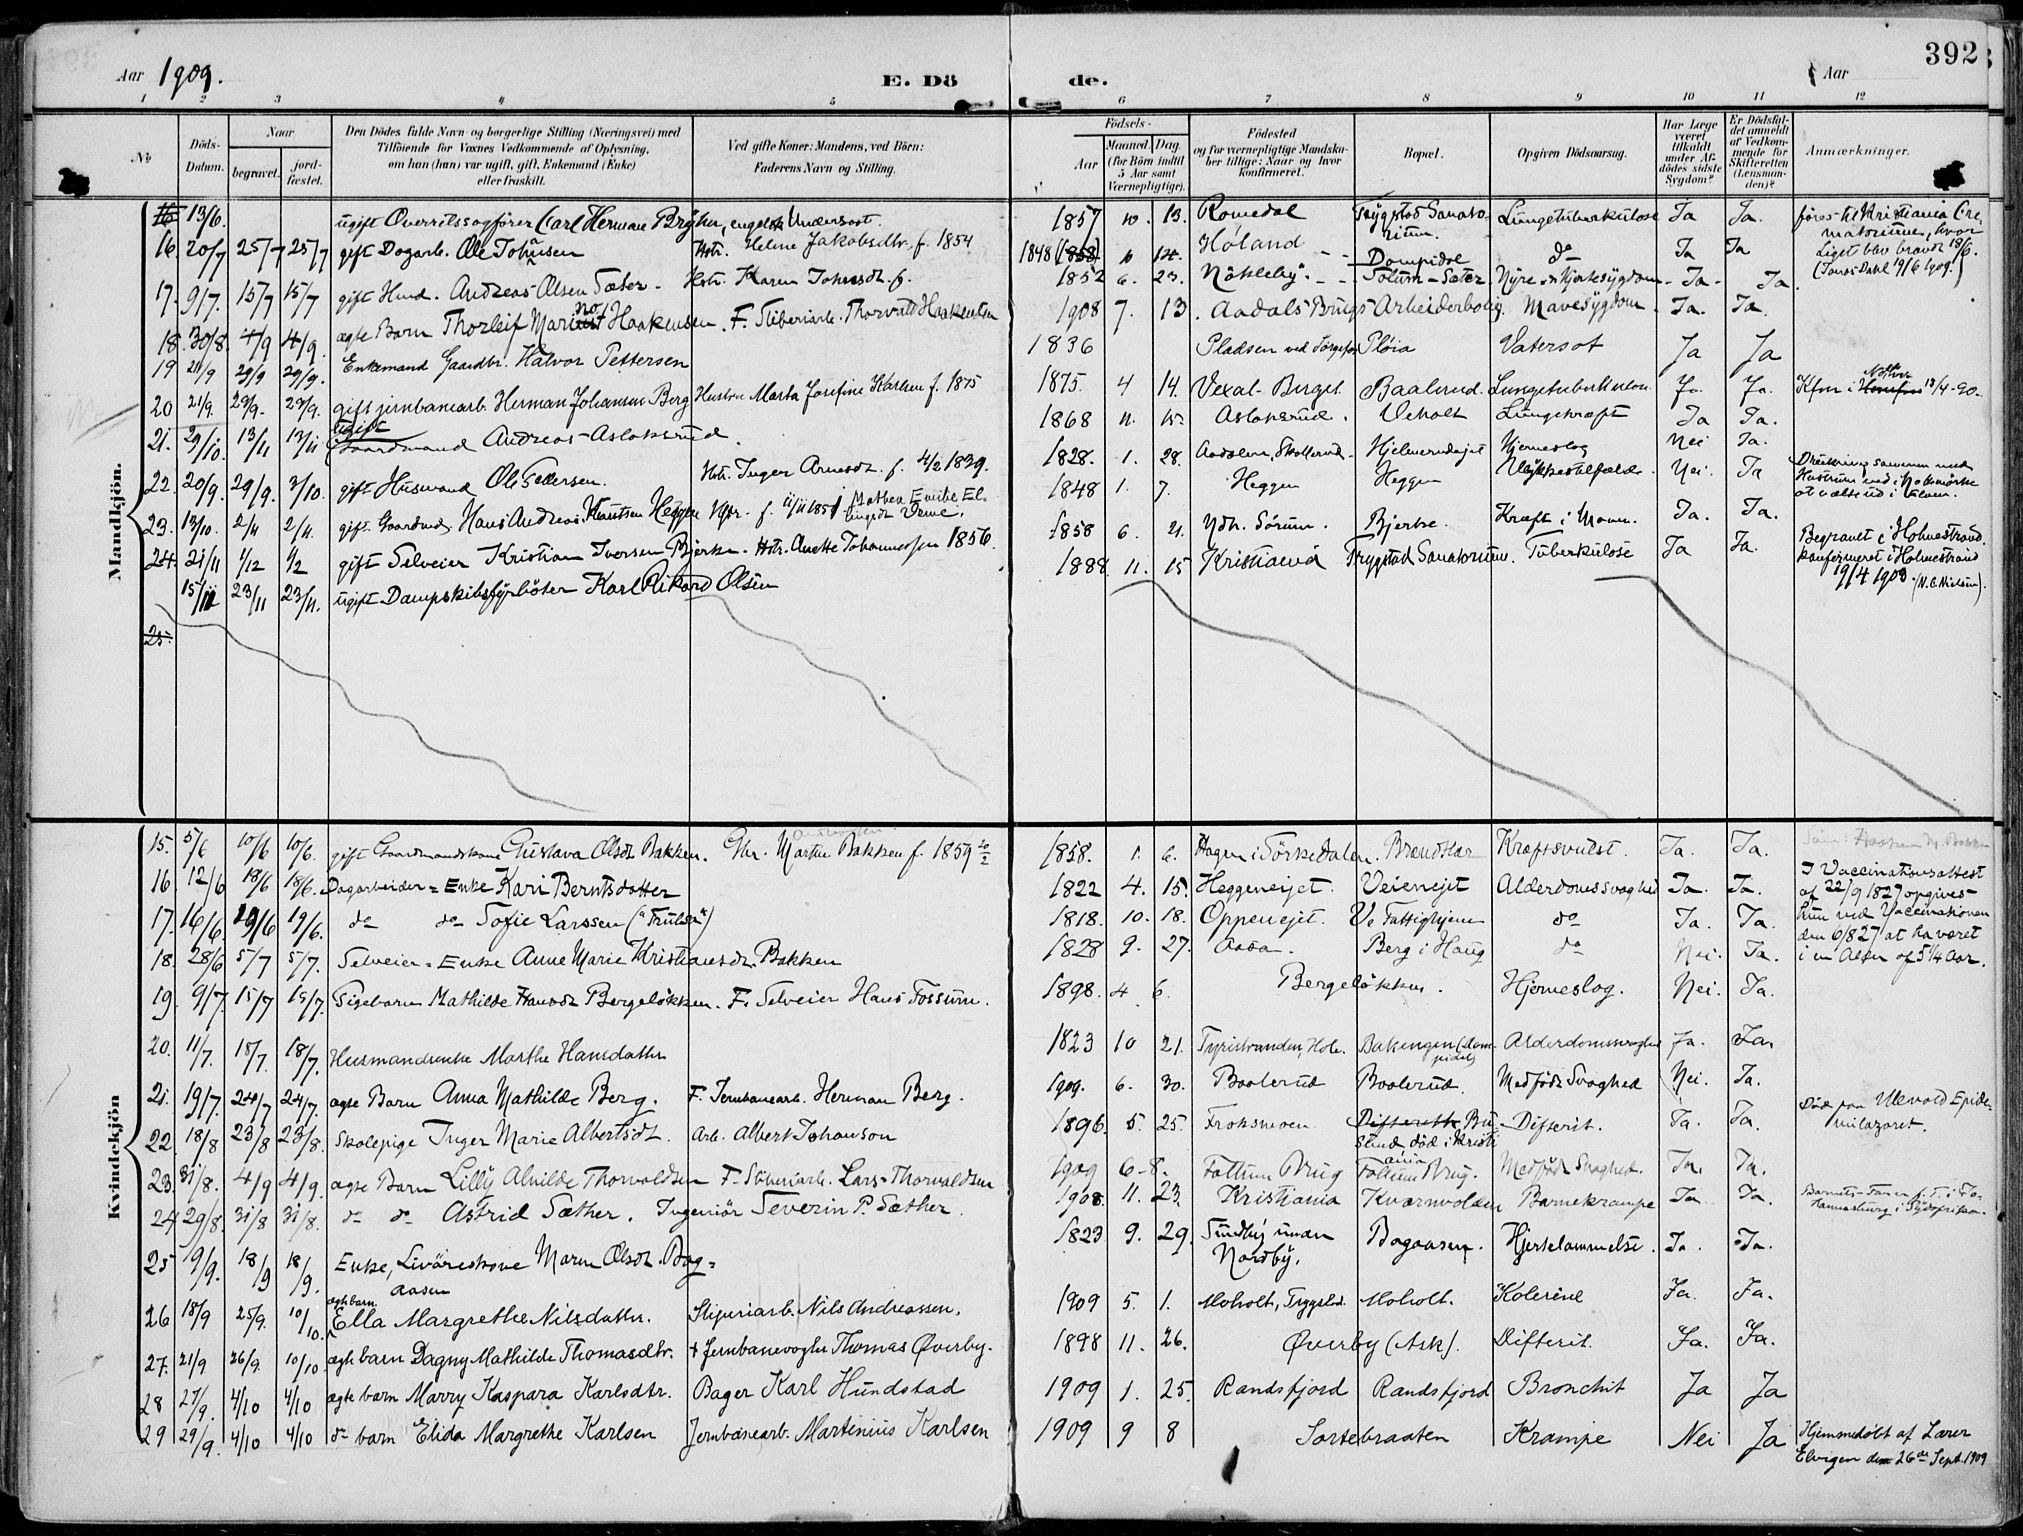 392
Aar 1909. E. Dö de. Aar
1 2 3 4 5 6 7 8 9 10 11 12
No
Döds-Datum.
Naar
begravet.
jord-fæstet.
Den Dödes fulde Navn og borgerlige Stilling (Næringsvei) med
Tilföiende for Voxnes Vedkommende af Oplysning,
om han (hun) var ugift, gift, Enkemand (Enke)
eller fraskilt.
Ved gifte Koner: Mandens, ved Börn:
Faderens Navn og Stilling.
Födsels-
Aar
Maaned. Dag.
(for Börn indtil
5 Aar samt
Værnepligtige).
Födested
og for værnepligtige Mandska-
ber tillige: Naar og hvor
konfirmeret.
Bopæl.
Opgiven Dödsaarsag.
Har Læge
været
tilkaldt
under Af-
dödes sidste
Sygdom?
Er Dödsfal-
det anmeldt
af Vedkom-
mende for
Skifteretten
(Lensman-
den)?
Anmærkninger.
Mandkjön.
16 13/6. ugift Overretssagförer Carl Herman Bryhn, engelsk Undersaat. 1857 10. 13. Romedal Trygstad Sanato-rium. Lungetuberkulose Ja Ja. föres til Kristiania Cre-
matorium, hvor
Liget blev brændt 18/6.
16. 20/7 25/7 25/7 gift Dagarb. Ole Johansen Hstr. Helene Jakobsdtr. f. 1854 1848 (1858) 10 14. Höland Dompidal do Ja Ja
17. 9/7. 15/7 15/7 gift Hmd. Andreas Olsen Sæter. Hstr. Karen Johnsdt. f. 1852 6. 23. Näkleby. Folum-Sæter. Nyre- og Hjertesygdom Ja Ja
18. 30/8. 4/9 4/9. ægte Barn Thorleif Marino Haakensen. F. Sliberiarb. Thorvald Haakensen 1908 7. 13. Aadals Brugs Arbeiderbolig. Mavesygdom. Ja. Ja.
19 21/9 29/9 29/9. Enkemand Gaardbr. Halvor Pettersen 1836 Pladsen ved Pløia Vatersot Ja Ja
20 21/9. 29/9. 29/9. gift jernbanearb. Herman Johansen Berg Hustru Marta Josefine Karlsen f. 1875 1875. 4 14. Baalerud. Lungetuberkulose Ja. Ja. Kfm i 13/4-90.
21. 29/10. 13/11 13/11 ugift Gaardmand Andreas Aslaksrud. 1868 11. 15. Aslaksrud. Veholt Lungekræft Ja Ja.
22. 20/9. 29/9. 3/10. gift Husmand Ole Pedersen. Hstr. Inger Arnesdt. f. 4/2 1839. 1828. 1. 28. Hjelmerudejet Hjerneslag Nei Ja.
23. 13/10. 2/11 2/11. gift Gaardmd. Hans Andreas Knutsen Heggen Hstr. f. 11/11 1851 Mathea Emilie El-
1848 1. 7. Heggen Heggen Ulykkestilfælde. Nei. Ja
24. 21/11 1/12 1/12 gift Selveier Kristian Iversen Bjerke. Hstr. Anette Johannesen 1856. 1858 6. 21. Ndr. Sörum. Bjerke. Kræft i Maven. Ja. Ja.
15/11 23/11 23/11. ugift Dampskibsfyrböter Karl Rikard Olsen 1888 11. 15 Kristiania Trygstad Sanatorium. Tuberkulose Ja Ja. Begravet i Holmestrand.
konfirmeret i Holmestrand
19/4 1903. (N. C. Nielsen).
25.
Kvindekjön
15. 5/6 10/6 10/6. gift Gaardmandskone Gustava Olsdt. Bakken. Gbr. Martin Bakken f. 1859 1858. 1. 6. Hagen i Sörkedalen. Kræftsvulst. Ja. Ja.
16. 12/6 18/6 18/6. Dagarbeider-Enke Kari Berntsdatter 1822 4. 15. Heggenejet. Veienejet Alderdomssvaghed Ja. Ja. I Vaccinationsattest
af 22/9 1827 opgives
17. 16/6. 19/6 19/6. do do Sofie Larssen 1818. 10. 18. Oppenejet. Vs Fattighjem do Ja. Ja. hun ved Vaccinationen
den 6/8 27 at ha været
18. 28/6 5/7 5/7. Selveier-Enke Anne Marie Kristiansdt. Bakken 1828 9. 27. Aasa. Berg i Haug do Nei. Ja. i en Alder af 5 1/4 Aar.
19. 9/7. 15/7 15/7. Pigebarn Mathilde Hansdt. Bergelökken. F. Selveier Hans Fossum. 1898. 4 6. Bergelökken. Hjerneslag. Nei. Ja.
20. 11/7. 18/7. 18/7. Husmandsenke Marthe Hansdatter 1823 10 21. Tyristranden, Hole. Bakengen (Dom-pidal) Alderdomssvaghed Ja. Ja.
21. 19/7. 24/7 24/7. ægte Barn Anna Mathilde Berg. F. Jernbanearb. Herman Berg. 1909. 6. 30. Baalerud Baalerud. Medfödt Svaghed Nei. Ja.
22. 18/8 23/8 23/8. Skolepige Inger Marie Albertsdt. Arb. Albert Johanson 1896. 5. 25. Froksmoen. Difterit. Ja. Ja. Död paa Ullevold Epide-
milazaret.
23. 31/8. 4/9 4/9. ægte Barn Lilly Alvilde Thorvaldsen F. Sliberiarb. Lars Thorvaldsen 1909 6-8. Follum Brug Follum Brug. Medfödt Svaghed. Ja. Ja.
24. 29/8. 31/8 31/8. do do Astrid Sæther. Ingeniör Severin P. Sæther. 1908. 11. 23. Kristiania Kværnvolden Barnekrampe Ja. Ja.
25 9/9. 18/9 18/9. Enke, Livöreskone Maren Olsdt. Bag-
aasen 1823 9. 29. Sundby under
Nordby. Bagaasen. Hjertelammelse. Ja. Ja.
26 18/9 25/9. 10/10. ægte barn. Ella Margrethe Nilsdatter. Sliperiarb. Nils Andreassen. 1909 5. 1. Moholt, Tryggstad. Moholt. Kolerine Ja. Ja.
27. 21/9 26/9. 10/10. ægte barn Dagny Mathilde Thomasdtr. + Jernbanevogter Thomas Øverby. 1898 11. 26. Øverby (Ask). Difterit. Ja. Ja.
28 27/9. 4/10 4/10 ægte barn Marry Kaspara Karlsdtr. Bager Karl Hundstad 1909 1. 25. Randsfjord Randsfjord Bronchit Ja Ja
29 29/9. 4/10 4/10 do barn Elida Margrethe Karlsen Jernbanearb. Martinius Karlsen 1909 9 8 Sortebraaten Krampe Nei Ja Hjemmedöbt af Lærer
Elvigen den 26de Sept. 1909